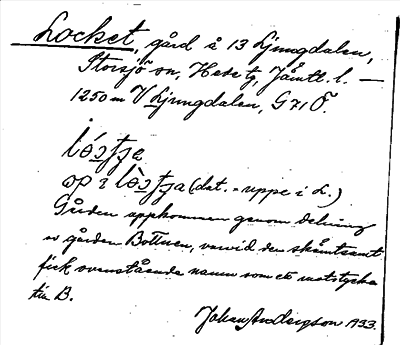 Locket, gård å 13 Ljungdalen,
Storsjö sn, Hede tg, Jämtl. l. —
1250 m V Ljungdalen, G71 Ö.
lóʃtja
op i lòʃtja (dat. = uppe i L.)
Gården uppkommen genom delning
av gården Bottnen, varvid den skämtsamt
fick ovanstående namn som ett motstycke
till B.
Johan Andersson 1933.